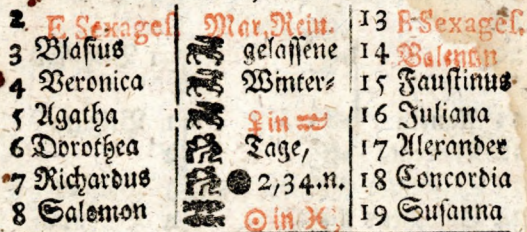 2 E Sexages. Mar. Rein. 13 F Sexages.
3 Blasius gelassene 14 Valentin
4 Veronica Winter⸗ 15 Faustinus
5 Agatha ♀ in ♒ 16 Juliana
6 Dorothea Tage, 17 Alexander
7 Richardus ● 2,34.n. 18 Concordia
8 Salomon ☉ in ♓; 19 Susanna